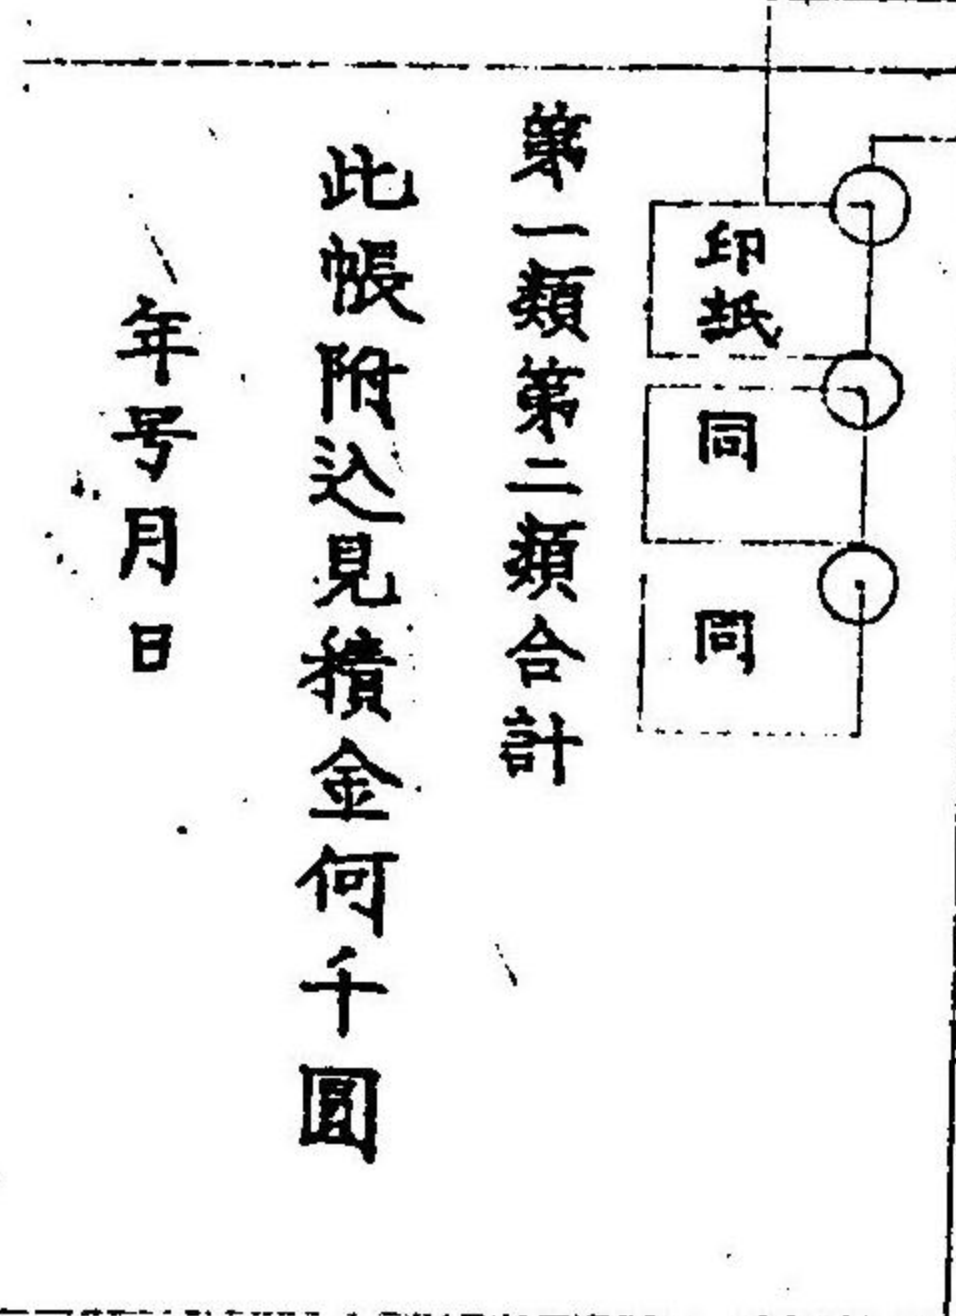 印紙
同
同
第一類第二類合計
此帳附込見積金何千圓
年号月日